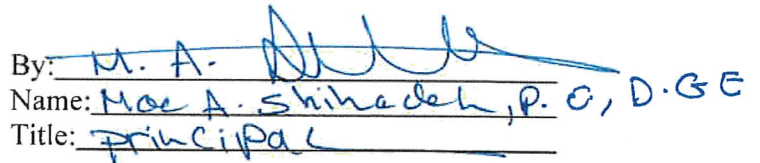 By: M. A.
Name: Moe A. Shihadeh, P. E, D.GE
Title: principal